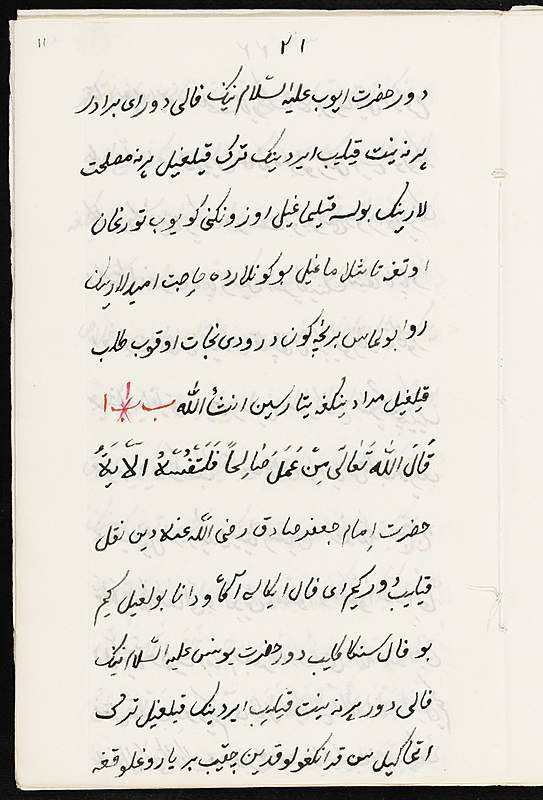 ۲۱
دور حضرت ایوب علیه السّلام نینک فالی دور ای برادر
هر نه نیت قیلیب ایردینک ترک قیلغیل هر نه مصلحت
لارینک بولسه قیلماغیل اوزونکنی کویوب تورغان
اوتغه تاشلاماغیل بو کونلارده حاجت امیدلارینک
روا بولماس بر نچه کون درودی نجات اوقوب طلب
قیلغیل مرادینکغه یتارسین انشأ الله ب ب ا ا
قَالَ اللّٰه تَعَالَی مِنْ عَمَلَ صَالِحاً فَلَنَفْسِهُ الآیَةُ
حضرت اِمام جعفر صادق رضی اللّٰه عنه دین نقل
قیلیب دور کیم ای فال ایکاسی آکاْه و دانا بولغیل کیم
بو فال سنکا کلیب دور حضرت یونس علیه السّلام نینک
فالی دور هر نه نیت قیلیب ایردینک قیلغیل ترکی
اتماکیل سن قرانکغولوقدین چقیب بر یاروغلوقغه